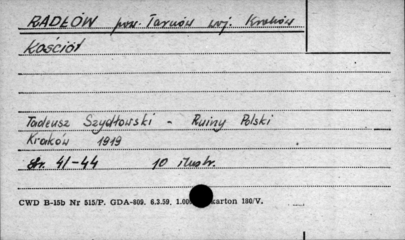 RADŁÓW pow. Tarnów woj. Kraków
Kościół
Tadeusz Szydłowski - Ruiny Polski
Kraków 1919
str. 41-44 10 ilustr.
CWD B-15b Nr 515/P. GDA-809. 6.3.59. karton 180/V.